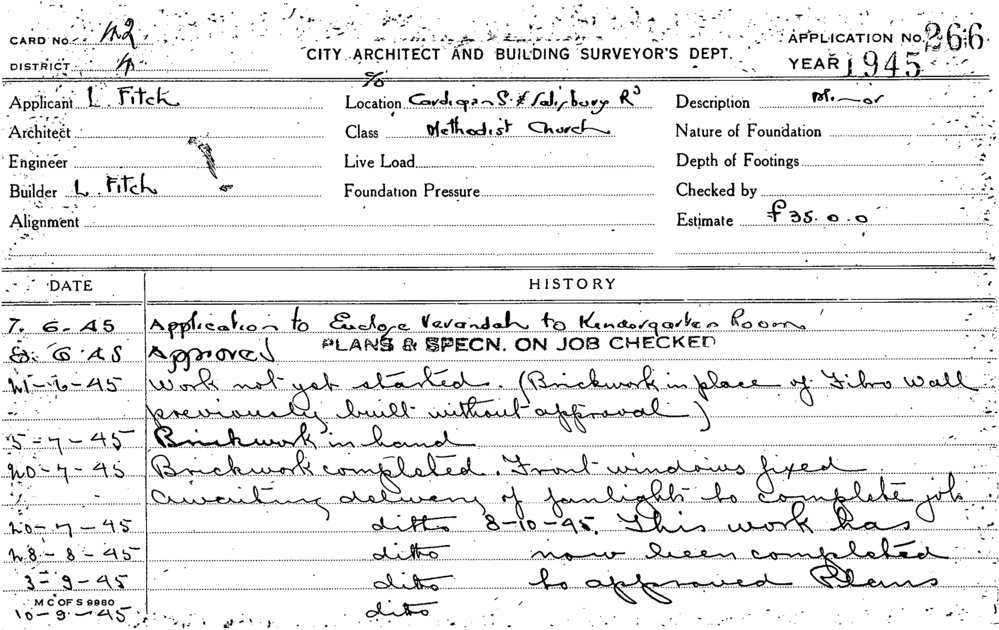 CARD No. 42
DISTRICT 4
CITY ARCHITECT AND BUILDING SURVEYOR'S DEPT.
APPLICATION No. 266
YEAR 1945
Applicant L Fitch
Architect
Engineer
Builder L. Fitch
Alignment
c/o
Location Cardigan S. & Salisbury Rd
Class Methodist Church
Live Load
Foundation Pressure
Description Minor
Nature of Foundation
Depth of Footings
Checked by
Estimate £35.0.0
DATE HISTORY
7. 6-45 Application to Enclose Verandah to Kindergarten Room
8. 6.45 Approved PLANS & SPECN. ON JOB CHECKED
21-6-45 Work not yet started. (Brickwork in place of Fibro wall
previously built without approval)
5-7-45 Brickwork in hand
20-7-45 Brickwork completed. Front windows fixed
Awaiting delivery of fanlights to complete job
20-7-45 ditto 8-10-45. This work has
28-8-45 ditto now been completed
3-9-45 ditto to approved Plans
M C OF S 9980
10-9-45 ditto